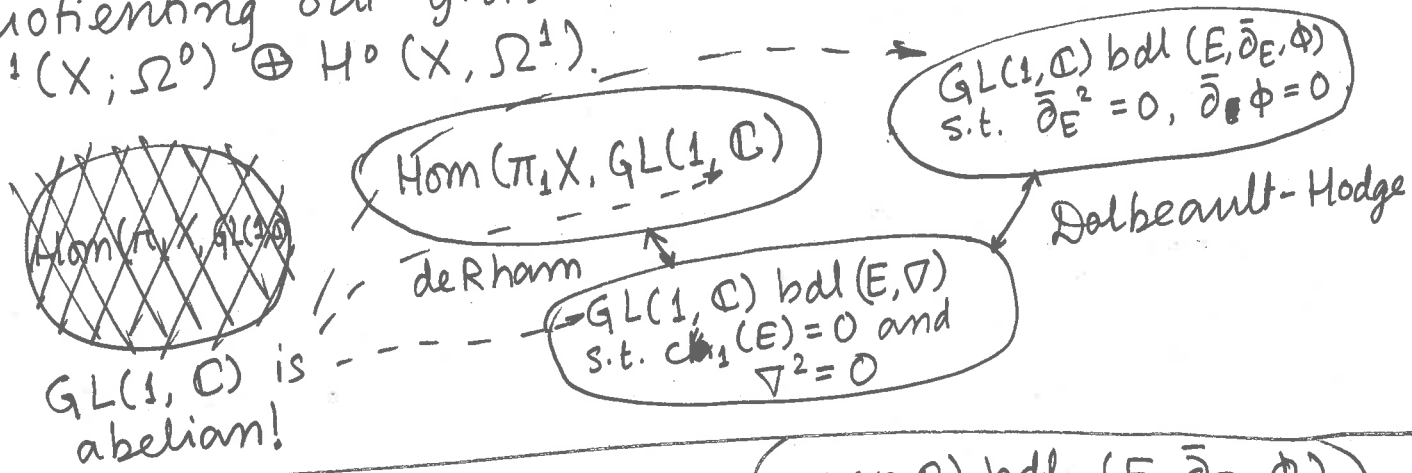 uotienting out
¹(X; Ω⁰) ⊕ H⁰(X, Ω¹).
GL(1, ℂ) bdl (E, ∂̄_E, Φ)
s.t. ∂̄_E² = 0, ∂̄ Φ = 0
Hom(π₁X, GL(1, ℂ)
Hom(π₁X, GL(1, ℂ)
Dolbeault-Hodge
deRham
GL(1, ℂ) bdl (E, ∇)
s.t. c₁(E) = 0 and
∇² = 0
GL(1, ℂ) is
abelian!
bdl (E, ∂̄_E, Φ)